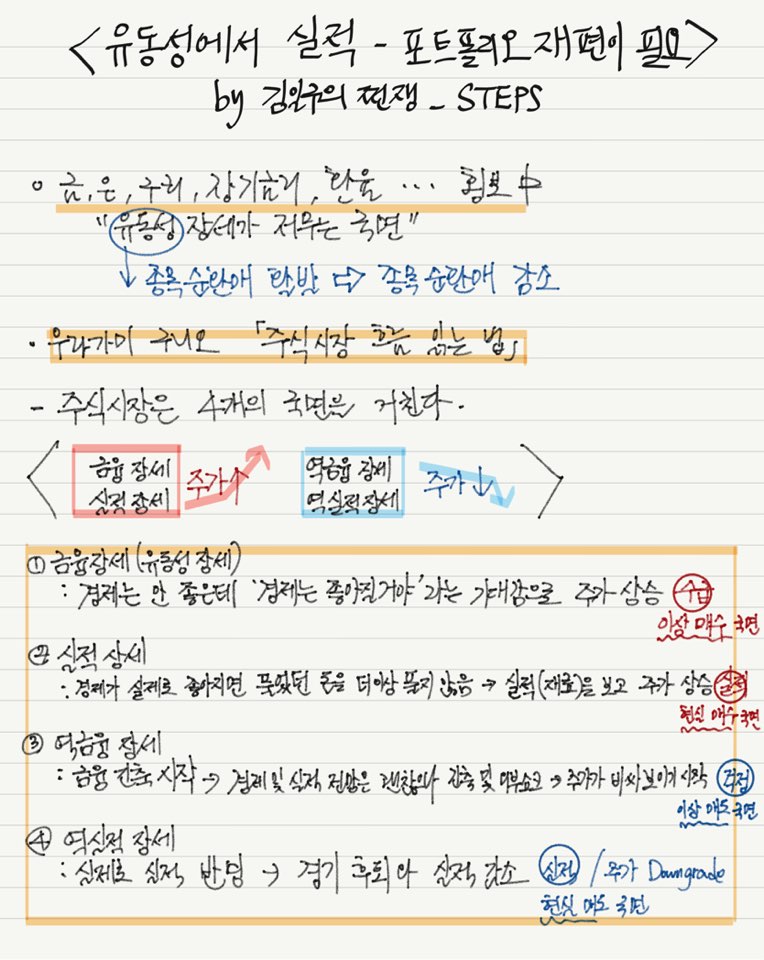 <유동성에서 실적 - 포트폴리오 재편이 필요>
by 김일구의 쩐쟁 - STEPS
금, 은, 구리, 장기금리, 환율 … 횡보 中
"유동성 장세가 저무는 국면"
↓ 종목순환매 활발 ⇨ 종목순환매 감소
· 우라가미 구니오 「주식시장 흐름 읽는 법」
- 주식시장은 4개의 국면을 거친다.
금융 장세 역금융 장세
실적 장세 주가↑ 역실적장세 주가↓
① 금융장세 (유동성 장세)
: 경제는 안 좋은데 '경제는 좋아질거야'라는 기대감으로 주가 상승 수급
이상 매수 국면
② 실적 장세
: 경제가 실제로 좋아지면 풀었던 돈을 더이상 풀지 않음 → 실적(재료)을 보고 주가 상승 실적
현실 매수 국면
③ 역금융 장세
: 금융 긴축 시작 → 경제 및 실적 전망은 괜찮으나 긴축 및 외부쇼크 → 주가가 비싸 보이기 시작 걱정
이상 매도 국면
④ 역실적 장세
: 실제로 실적 반영 → 경기 후퇴와 실적 감소 실적 / 주가 Downgrade
현실 매도 국면